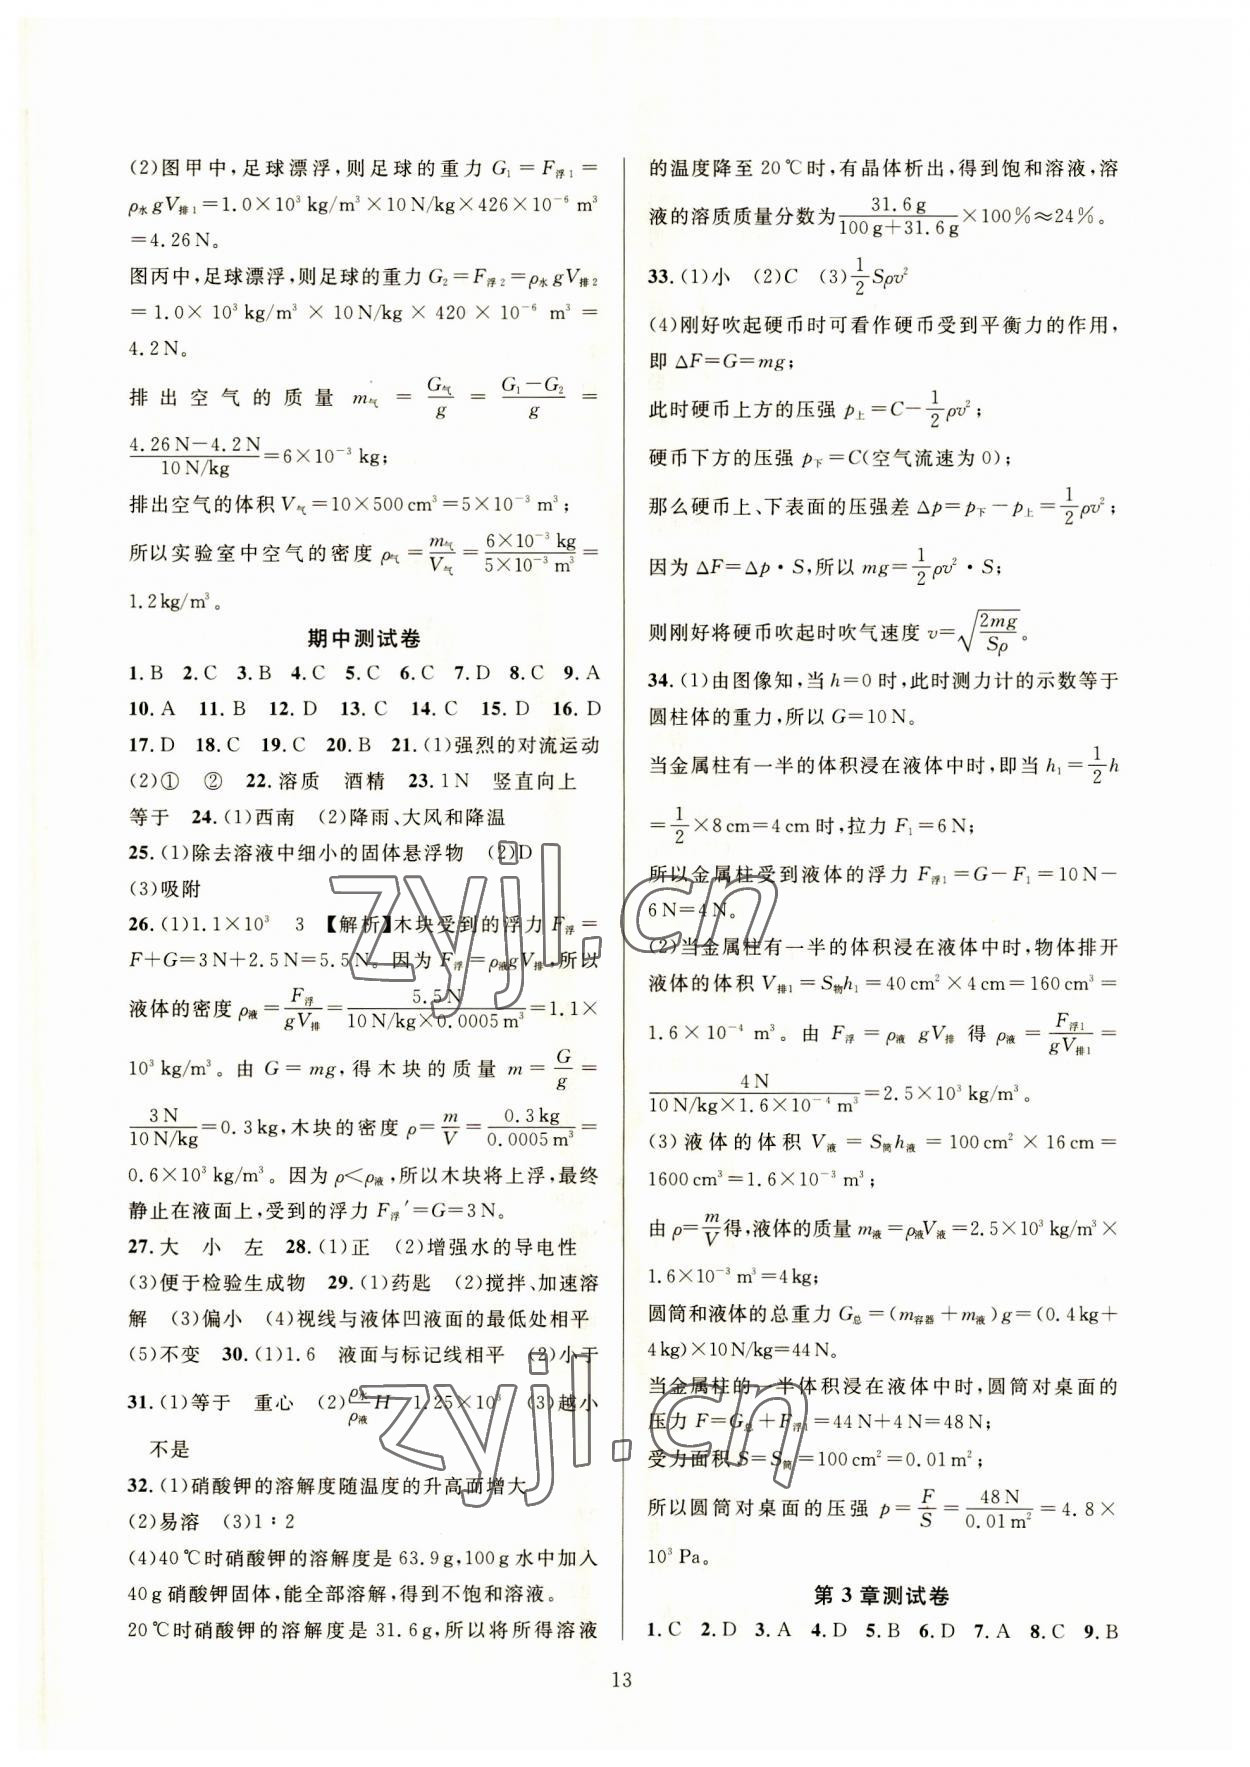 (2)图甲中,足球漂浮,则足球的重力 G₁=F浮1=
ρ水gV排1=1.0×10³ kg/m³×10 N/kg×426×10⁻⁶ m³
=4.26 N。
图丙中,足球漂浮,则足球的重力 G₂=F浮2=ρ水gV排2
=1.0×10³ kg/m³×10 N/kg×420×10⁻⁶ m³=
4.2 N。
排出空气的质量 m气=G气/g=(G₁-G₂)/g=
(4.26 N-4.2 N)/(10 N/kg)=6×10⁻³ kg;
排出空气的体积 V气=10×500 cm³=5×10⁻³ m³;
所以实验室中空气的密度 ρ气=m气/V气=(6×10⁻³ kg)/(5×10⁻³ m³)=
1.2 kg/m³。
期中测试卷
1. B 2. C 3. B 4. C 5. C 6. C 7. D 8. C 9. A
10. A 11. B 12. D 13. C 14. C 15. D 16. D
17. D 18. C 19. C 20. B 21. (1)强烈的对流运动
(2)① ② 22. 溶质 酒精 23. 1 N 竖直向上
等于 24. (1)西南 (2)降雨、大风和降温
25. (1)除去溶液中细小的固体悬浮物 (2)D
(3)吸附
26. (1)1.1×10³ 3 【解析】木块受到的浮力 F浮=
F+G=3 N+2.5 N=5.5 N。因为 F浮=ρ液gV排,所以
液体的密度 ρ液=F浮/(gV排)=5.5 N/(10 N/kg×0.0005 m³)=1.1×
10³ kg/m³。由 G=mg,得木块的质量 m=G/g=
3 N/(10 N/kg)=0.3 kg,木块的密度 ρ=m/V=0.3 kg/0.0005 m³=
0.6×10³ kg/m³。因为 ρ<ρ液,所以木块将上浮,最终
静止在液面上,受到的浮力 F浮′=G=3 N。
27. 大 小 左 28. (1)正 (2)增强水的导电性
(3)便于检验生成物 29. (1)药匙 (2)搅拌、加速溶
解 (3)偏小 (4)视线与液体凹液面的最低处相平
(5)不变 30. (1)1.6 液面与标记线相平 (2)小于
31. (1)等于 重心 (2)(ρ水/ρ液)H 1.25×10³ (3)越小
不是
32. (1)硝酸钾的溶解度随温度的升高而增大
(2)易溶 (3)1∶2
(4)40 ℃时硝酸钾的溶解度是 63.9 g,100 g 水中加入
40 g 硝酸钾固体,能全部溶解,得到不饱和溶液。
20 ℃时硝酸钾的溶解度是 31.6 g,所以将所得溶液
的温度降至 20 ℃时,有晶体析出,得到饱和溶液,溶
液的溶质质量分数为 31.6 g/(100 g+31.6 g)×100%≈24%。
33. (1)小 (2)C (3)1/2 Sρv²
(4)刚好吹起硬币时可看作硬币受到平衡力的作用,
即 ΔF=G=mg;
此时硬币上方的压强 p上=C-1/2 ρv²;
硬币下方的压强 p下=C(空气流速为 0);
那么硬币上、下表面的压强差 Δp=p下-p上=1/2 ρv²;
因为 ΔF=Δp·S,所以 mg=1/2 ρv²·S;
则刚好将硬币吹起时吹气速度 v=√(2mg/Sρ)。
34. (1)由图像知,当 h=0 时,此时测力计的示数等于
圆柱体的重力,所以 G=10 N。
当金属柱有一半的体积浸在液体中时,即当 h₁=1/2 h
=1/2×8 cm=4 cm 时,拉力 F₁=6 N;
所以金属柱受到液体的浮力 F浮1=G-F₁=10 N-
6 N=4 N。
(2)当金属柱有一半的体积浸在液体中时,物体排开
液体的体积 V排1=S物h₁=40 cm²×4 cm=160 cm³=
1.6×10⁻⁴ m³。由 F浮=ρ液gV排 得 ρ液=F浮1/(gV排1)=
4 N/(10 N/kg×1.6×10⁻⁴ m³)=2.5×10³ kg/m³。
(3)液体的体积 V液=S筒h液=100 cm²×16 cm=
1600 cm³=1.6×10⁻³ m³;
由 ρ=m/V 得,液体的质量 m液=ρ液V液=2.5×10³ kg/m³×
1.6×10⁻³ m³=4 kg;
圆筒和液体的总重力 G总=(m容器+m液)g=(0.4 kg+
4 kg)×10 N/kg=44 N。
当金属柱的一半体积浸在液体中时,圆筒对桌面的
压力 F=G总+F浮1=44 N+4 N=48 N;
受力面积 S=S筒=100 cm²=0.01 m²;
所以圆筒对桌面的压强 p=F/S=48 N/0.01 m²=4.8×
10³ Pa。
第 3 章测试卷
1. C 2. D 3. A 4. D 5. B 6. D 7. A 8. C 9. B
13
zyjl.cn
zyjl.cn